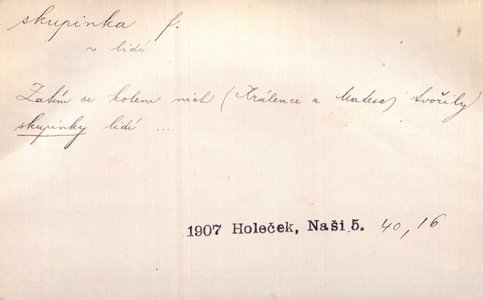 skupinka f.
~ lidí
Zatím se kolem nich (Králence a Matesa) tvořily
skupinky lidí ...
1907 Holeček, Naši 5. 40, 16